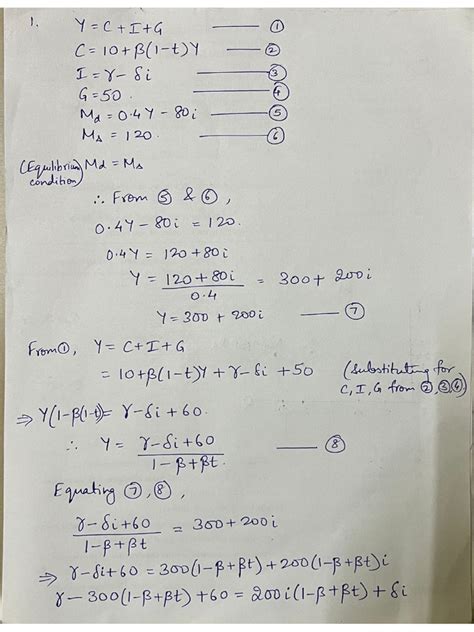 1. Y = C + I + G ——— ①
C = 10 + β(1-t)Y ——— ②
I = γ - δi ——— ③
G = 50 . ——— ④
Md = 0.4Y - 80i ——— ⑤
Ms = 120. ——— ⑥
(Equilibrium condition) Md = Ms
∴ From ⑤ & ⑥,
0.4Y - 80i = 120.
0.4Y = 120 + 80i
Y = (120 + 80i)/0.4 = 300 + 200i
Y = 300 + 200i ——— ⑦
From ①, Y = C + I + G
= 10 + β(1-t)Y + γ - δi + 50 (Substituting for C, I, G from ②,③,④)
⇒ Y(1-β(1-t)) = γ - δi + 60.
∴ Y = (γ - δi + 60)/(1 - β + βt) ——— ⑧
Equating ⑦, ⑧,
(γ - δi + 60)/(1 - β + βt) = 300 + 200i
⇒ γ - δi + 60 = 300(1-β+βt) + 200(1-β+βt)i
γ - 300(1-β+βt) + 60 = 200i(1-β+βt) + δi